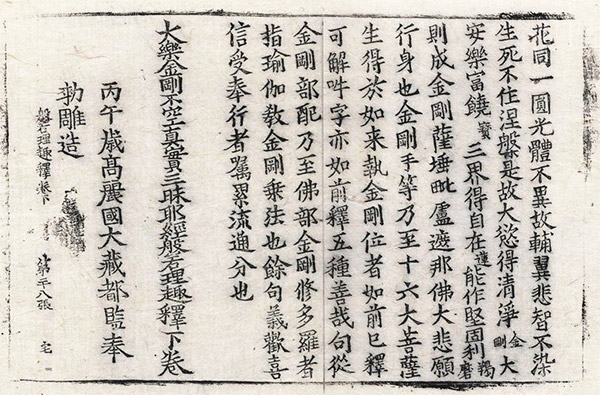 花同一圓光體不異故輔翼悲智不染
生死不住涅槃是故大慾得清淨金剛大
安樂富饒寶三界得自在蓮能作堅固利羯磨
則成金剛薩埵毗盧遮那佛大悲願
行身也金剛手等乃至十六大菩薩
生得於如来執金剛位者如前已釋
可解吽字亦如前釋五種善哉句從
金剛部配乃至佛部金剛修多羅者
指瑜伽教金剛乘法也餘句義歡喜
信受奉行者囑累流通分也
大樂金剛不空真實三昧耶經般若理趣釋下卷
丙午歲高麗國大藏都監奉
勑雕造
般若理趣釋卷下 第二十八張 宅